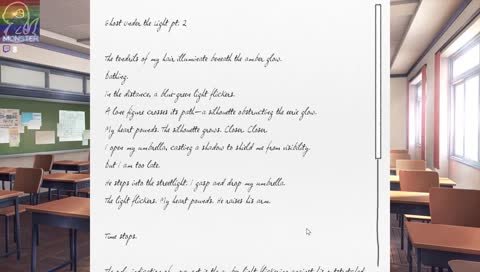 MONSTER
Ghost under the light pt. 2
The tendrils of my hair illuminate beneath the amber glow.
Bathing.
In the distance, a blue-green light flickers.
A lone figure crosses its path—a silhouette obstructing the eerie glow.
My heart pounds. The silhouette grows. Closer. Closer.
I open my umbrella, casting a shadow to shield me from visibility.
But I am too late.
He steps into the streetlight. I gasp and drop my umbrella.
The light flickers. My heart pounds. He raises his arm.
Time stops.